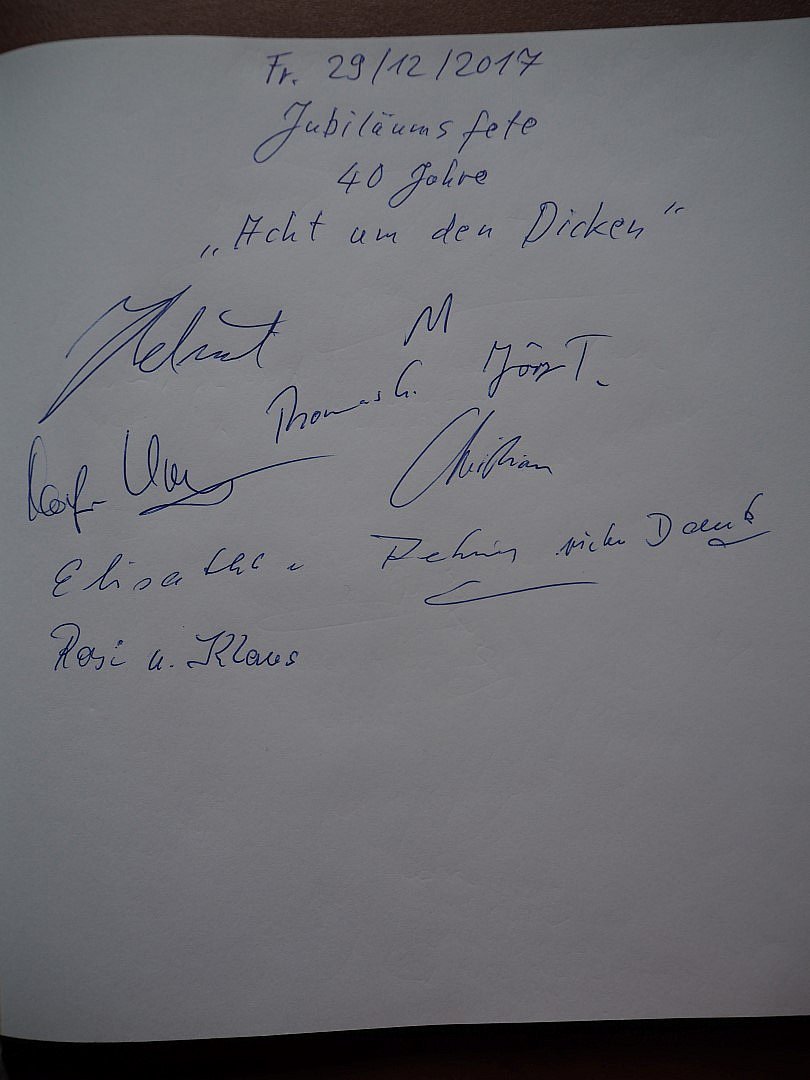 Fr. 29/12/2017
Jubiläumsfete
40 Jahre
„Acht um den Dicken“
Helmut M
Thomas G. Jörg T.
Christian
vielen Dank
Rosi u. Klaus